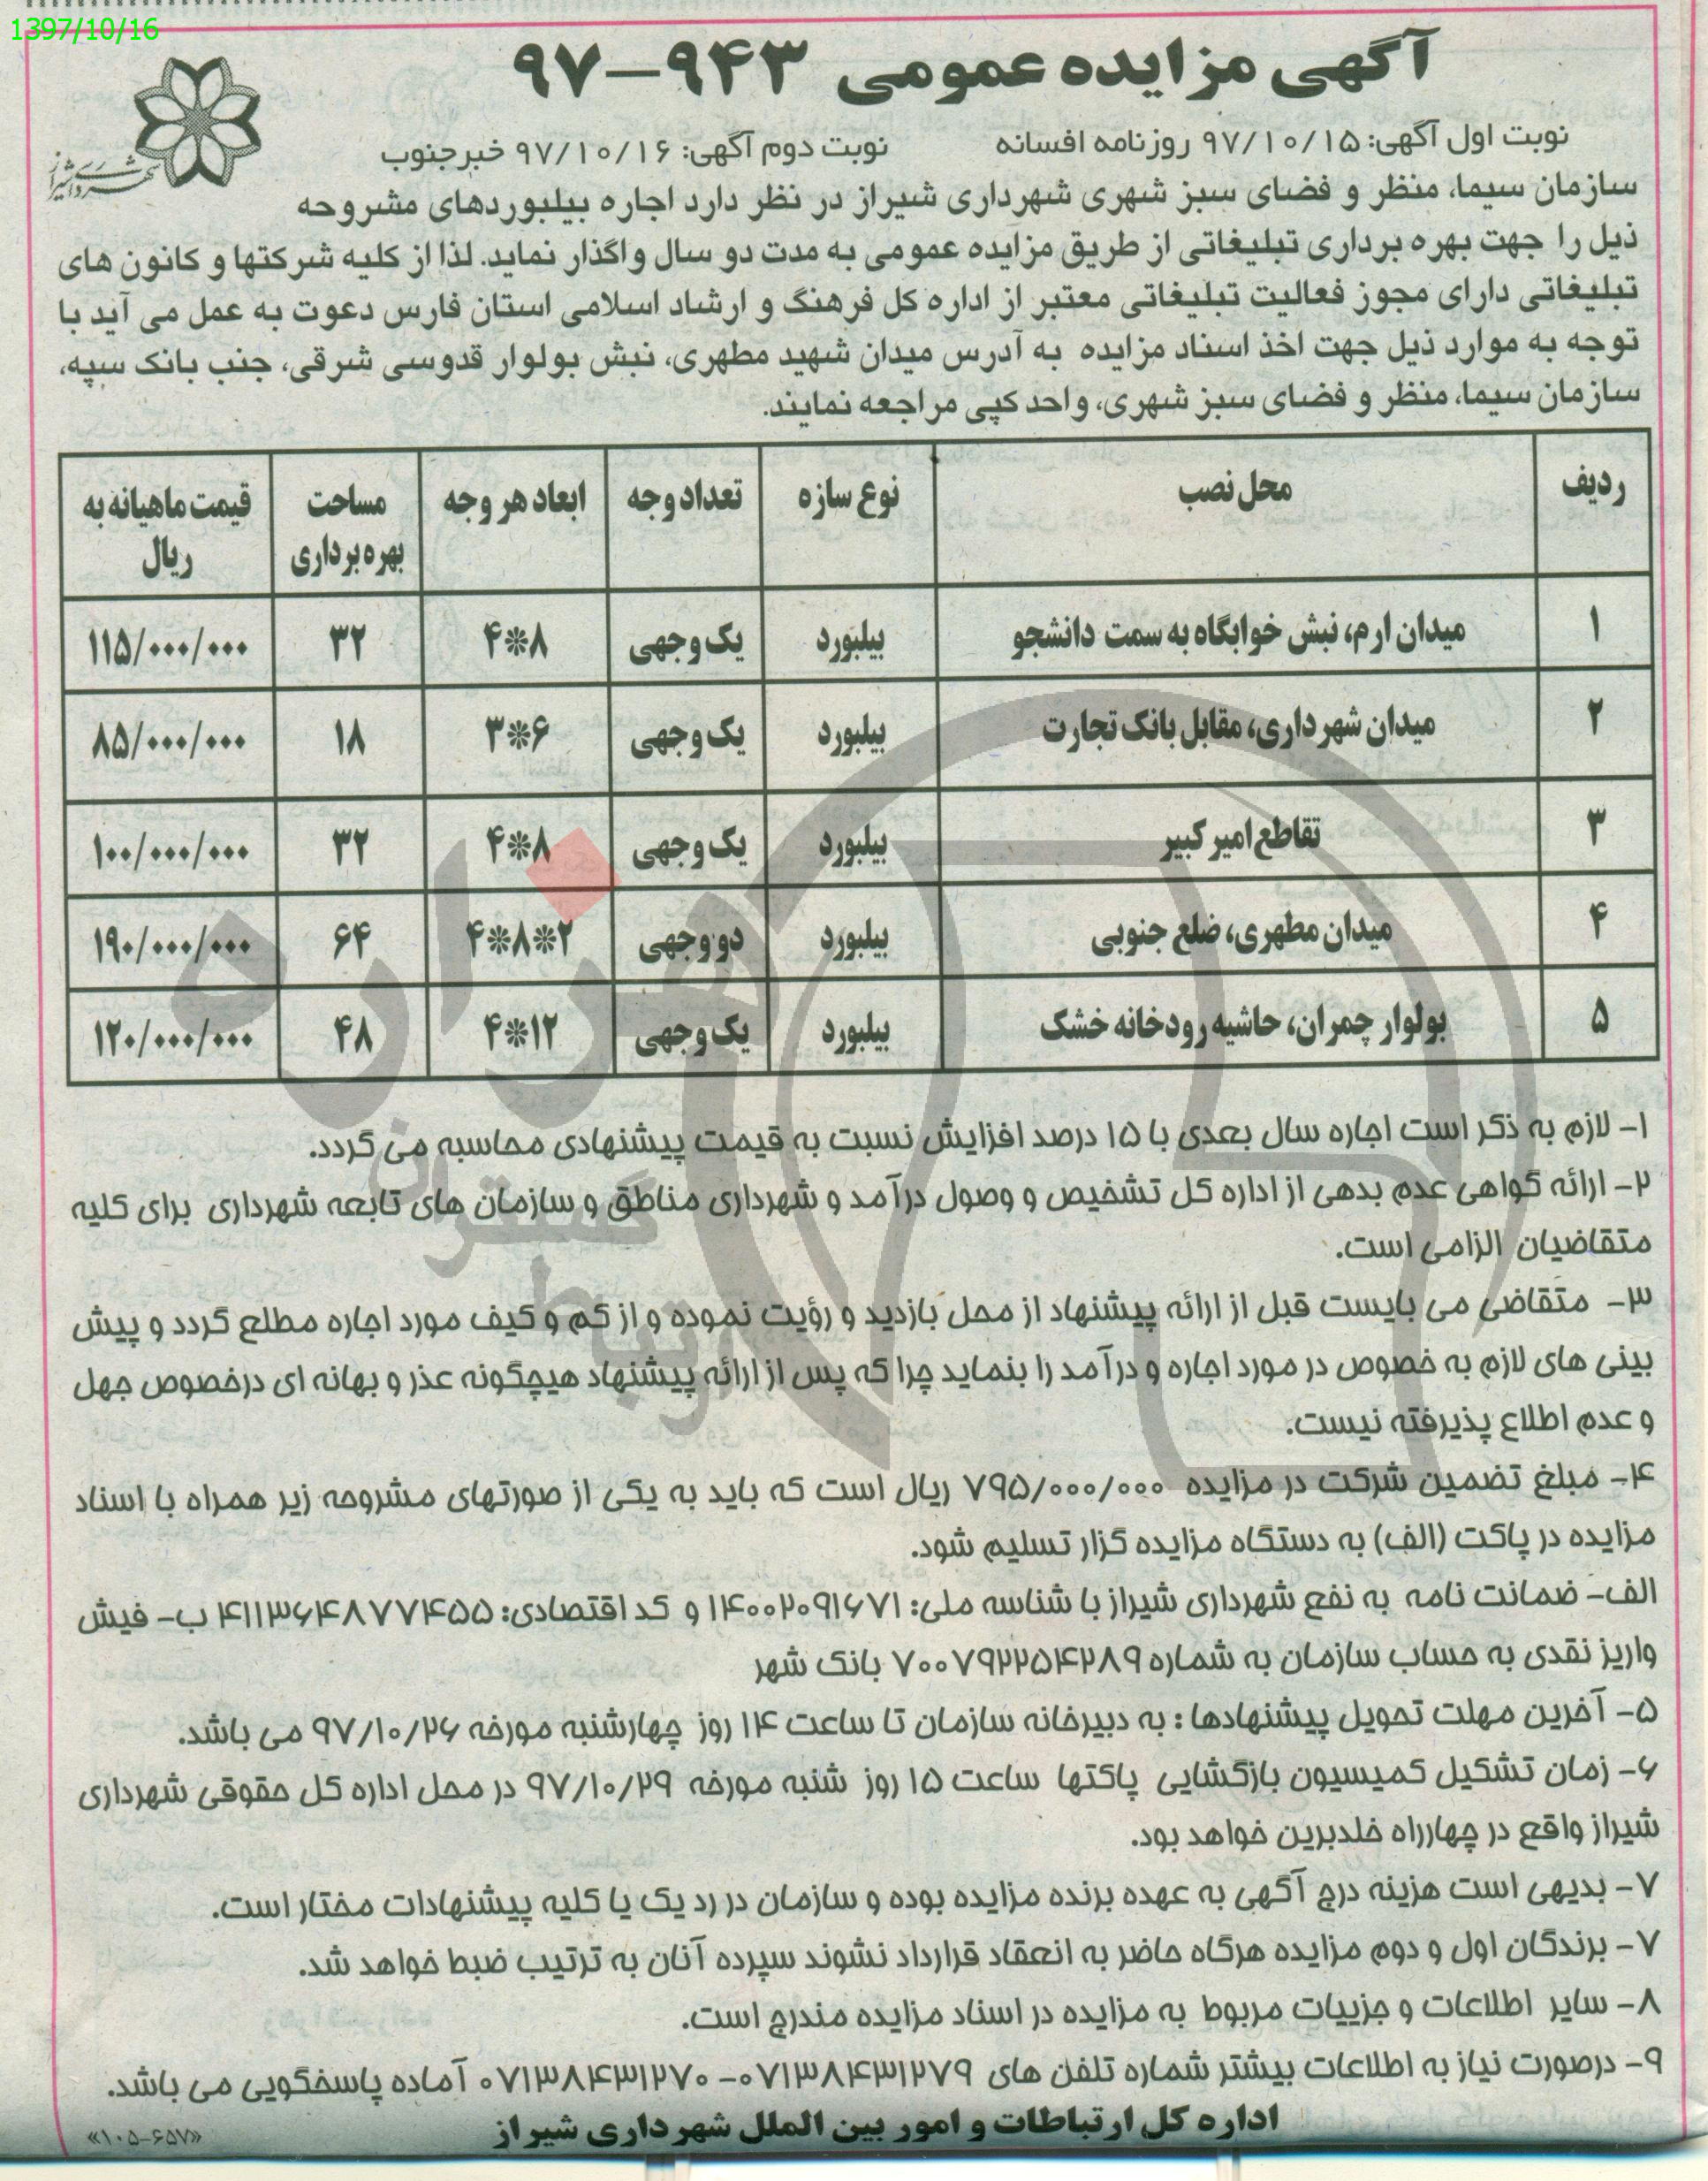 1397/10/16
آگهی مزایده عمومی ۹۴۳-۹۷
شهرداری شیراز
نوبت اول آگهی: ۹۷/۱۰/۱۵ روزنامه افسانه نوبت دوم آگهی: ۹۷/۱۰/۱۶ خبرجنوب
سازمان سیما، منظر و فضای سبز شهری شهرداری شیراز در نظر دارد اجاره بیلبوردهای مشروحه
ذیل را جهت بهره برداری تبلیغاتی از طریق مزایده عمومی به مدت دو سال واگذار نماید. لذا از کلیه شرکتها و کانون های
تبلیغاتی دارای مجوز فعالیت تبلیغاتی معتبر از اداره کل فرهنگ و ارشاد اسلامی استان فارس دعوت به عمل می آید با
توجه به موارد ذیل جهت اخذ اسناد مزایده به آدرس میدان شهید مطهری، نبش بولوار قدوسی شرقی، جنب بانک سپه،
سازمان سیما، منظر و فضای سبز شهری، واحد کپی مراجعه نمایند.
ردیف محل نصب نوع سازه تعداد وجه ابعاد هر وجه مساحت بهره برداری قیمت ماهیانه به ریال
۱ میدان ارم، نبش خوابگاه به سمت دانشجو بیلبورد یک وجهی ۸*۴ ۳۲ ۱۱۵/۰۰۰/۰۰۰
۲ میدان شهرداری، مقابل بانک تجارت بیلبورد یک وجهی ۶*۳ ۱۸ ۸۵/۰۰۰/۰۰۰
۳ تقاطع امیر کبیر بیلبورد یک وجهی ۸*۴ ۳۲ ۱۰۰/۰۰۰/۰۰۰
۴ میدان مطهری، ضلع جنوبی بیلبورد دو وجهی ۲*۸*۴ ۶۴ ۱۹۰/۰۰۰/۰۰۰
۵ بولوار چمران، حاشیه رودخانه خشک بیلبورد یک وجهی ۱۲*۴ ۴۸ ۱۲۰/۰۰۰/۰۰۰
۱- لازم به ذکر است اجاره سال بعدی با ۱۵ درصد افزایش نسبت به قیمت پیشنهادی محاسبه می گردد.
۲- ارائه گواهی عدم بدهی از اداره کل تشخیص و وصول درآمد و شهرداری مناطق و سازمان های تابعه شهرداری برای کلیه
متقاضیان الزامی است.
۳- متقاضی می بایست قبل از ارائه پیشنهاد از محل بازدید و رؤیت نموده و از کم و کیف مورد اجاره مطلع گردد و پیش
بینی های لازم به خصوص در مورد اجاره و درآمد را بنماید چرا که پس از ارائه پیشنهاد هیچگونه عذر و بهانه ای درخصوص جهل
و عدم اطلاع پذیرفته نیست.
۴- مبلغ تضمین شرکت در مزایده ۷۹۵/۰۰۰/۰۰۰ ریال است که باید به یکی از صورتهای مشروحه زیر همراه با اسناد
مزایده در پاکت (الف) به دستگاه مزایده گزار تسلیم شود.
الف- ضمانت نامه به نفع شهرداری شیراز با شناسه ملی: ۱۴۰۰۲۰۹۱۶۷۱ و کد اقتصادی: ۴۱۱۳۶۴۸۷۷۴۵۵ ب- فیش
واریز نقدی به حساب سازمان به شماره ۷۰۰۷۹۲۲۵۴۲۸۹ بانک شهر
۵- آخرین مهلت تحویل پیشنهادها : به دبیرخانه سازمان تا ساعت ۱۴ روز چهارشنبه مورخه ۹۷/۱۰/۲۶ می باشد.
۶- زمان تشکیل کمیسیون بازگشایی پاکتها ساعت ۱۵ روز شنبه مورخه ۹۷/۱۰/۲۹ در محل اداره کل حقوقی شهرداری
شیراز واقع در چهارراه خلدبرین خواهد بود.
۷- بدیهی است هزینه درج آگهی به عهده برنده مزایده بوده و سازمان در رد یک یا کلیه پیشنهادات مختار است.
۷- برندگان اول و دوم مزایده هرگاه حاضر به انعقاد قرارداد نشوند سپرده آنان به ترتیب ضبط خواهد شد.
۸- سایر اطلاعات و جزییات مربوط به مزایده در اسناد مزایده مندرج است.
۹- درصورت نیاز به اطلاعات بیشتر شماره تلفن های ۰۷۱۳۸۴۳۱۲۷۹-۰۷۱۳۸۴۳۱۲۷۰ آماده پاسخگویی می باشد.
اداره کل ارتباطات و امور بین الملل شهرداری شیراز
«۱۰۵-۶۵۷»